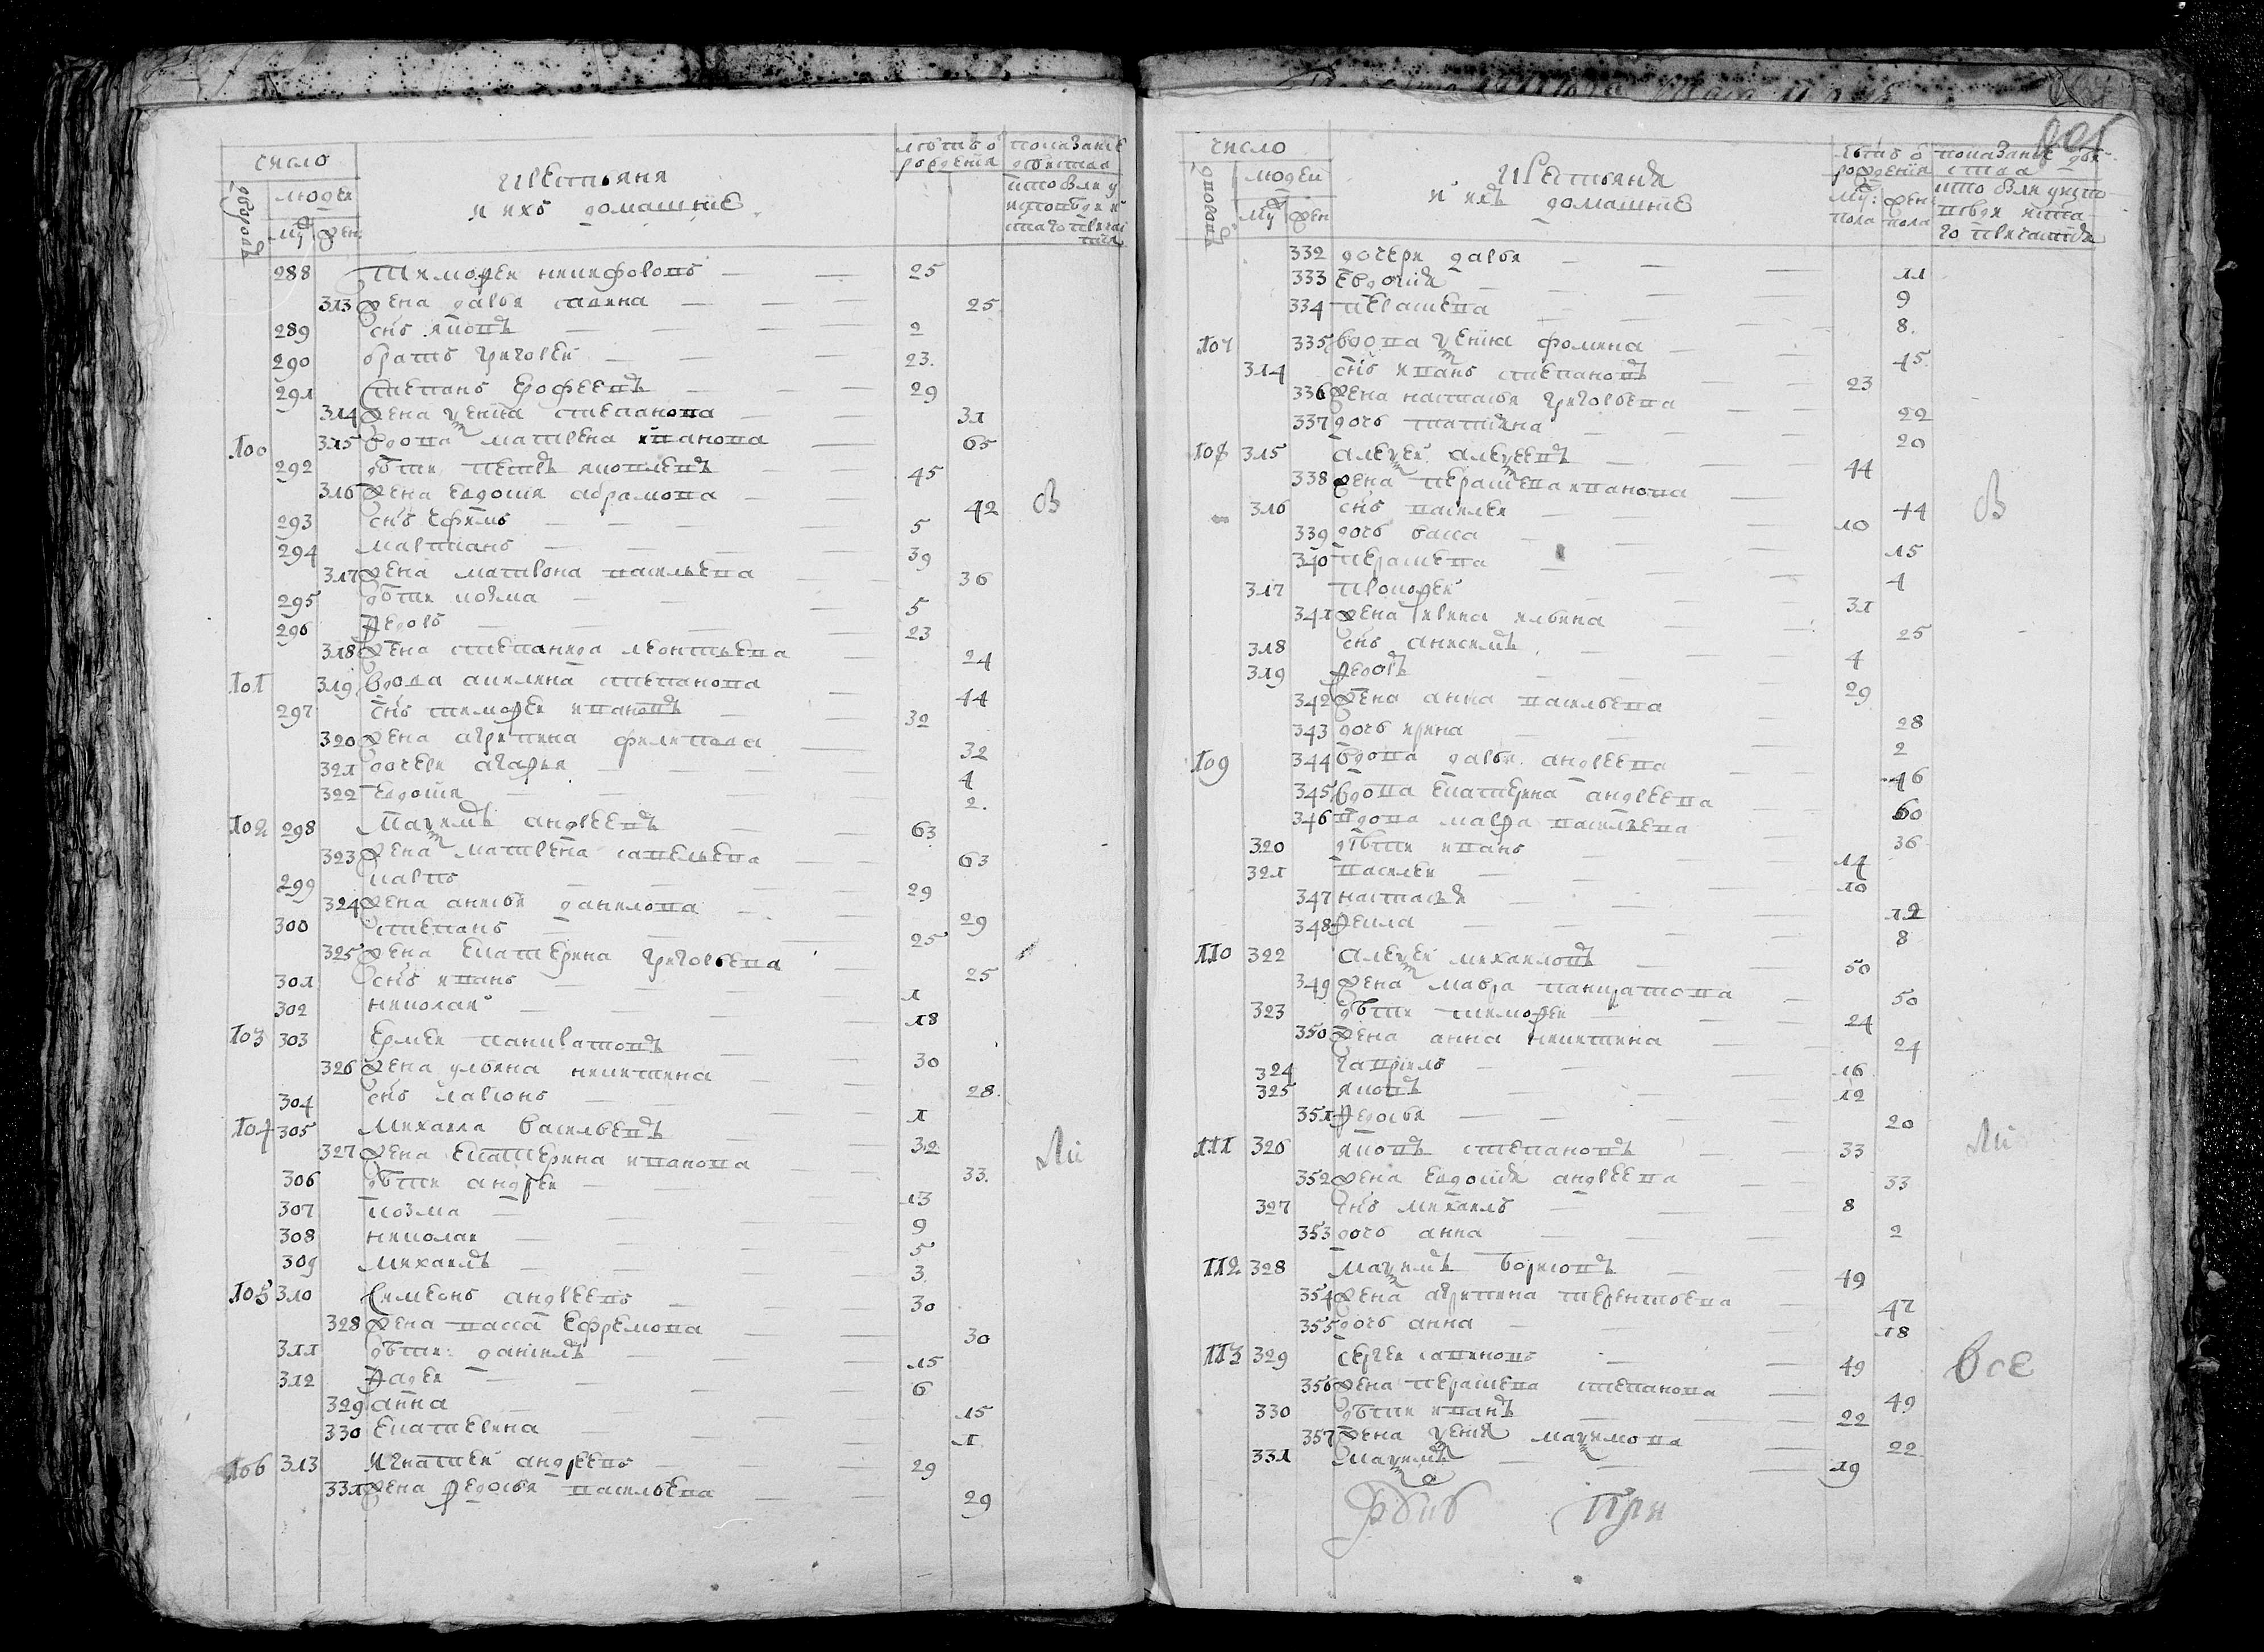 число
людей
дворовъ
му жен
крестьяня
и ихъ домашние
лѣта ѿ рождения
показание действа
кто был у исповеди и святаго причастия
288 тимофеи никифоровъ 25
313 жена дарья савина 25
289 снъ яковъ 2
290 братъ григореи 23
291 степанъ ерофеевъ 29
314 жена ѯения степанова 31
100 315 вдова матрена иванова 65
292 дѣти петръ яковлевъ 45
316 жена евдокия абрамова 42
293 снъ ефимъ 5
294 мартианъ 39
317 жена матрона васильева 36
295 дѣти козма 5
296 ѳедоръ 23
318 жена степанида леонтьева 24
101 319 вдова акилина степанова 44
297 снъ тимоѳеи ивановъ 32
320 жена агрипина филипова 32
321 дочери агаѳия 4
322 евдокия 2
102 298 маѯимъ андреевъ 63
323 жена матрена савельева 63
299 карпъ 29
324 жена анисья данилова 29
300 степанъ 25
325 жена екатерина григорьева 25
301 снъ иванъ 1
302 николаи 18
103 303 ермеи панкратовъ 30
326 жена ульяна никитина 28
304 снъ ларионъ 1
104 305 михаила васильевъ 32
327 жена екатерина иванова 33
306 дѣти андреи 13
307 козма 9
308 николаи 5
309 михаилъ 3
105 310 симеонъ андреевъ 30
328 жена васса ефремова 30
311 дѣти даниилъ 15
312 ѳадеи 6
329 анна 15
330 екатерина 1
106 313 игнатеи андреевъ 29
331 жена ѳедосья васильева 29
ѡв
ли
число
людей
дворовъ
му жен
крестьяня
и ихъ домашние
лѣта ѿ рождения
му: пола жен пола
показание действа
кто был у исповеди и святаго причастия
332 дочери дарья 11
333 евдокия 9
334 прасковя 8
107 335 вдова ѯения фомина 45
314 снъ иванъ степановъ 23
336 жена настасья григорьева 22
337 дочь татияна 20
108 315 алеѯеи алеѯеевъ 44
338 жена перасковя иванова 44
316 снъ василеи 10
339 дочь васса 15
340 перасковя 4
317 прокофеи 31
341 жена ирина ильина 25
318 снъ анисимъ 4
319 ѳедоръ 29
342 жена анна васильева 28
343 дочь ирина 2
109 344 вдова дарья андреева 46
345 вдова екатерина андреева 60
346 вдова мавра васильева 36
320 дѣти иванъ 14
321 василеи 10
347 настасья 12
348 ѳекла 8
110 322 алеѯеи михаиловъ 50
349 жена мавра панкратова 50
323 дѣти тимоѳеи 24
350 жена анна никитина 24
324 гавриилъ 16
325 яковъ 12
351 ѳедосья 20
111 326 яковъ степановъ 33
352 жена евдокия андреева 33
327 снъ михаилъ 8
353 дочь анна 2
112 328 маѯимъ борисовъ 49
354 жена агрипина терентьева 47
355 дочь анна 18
113 329 сергеи савиновъ 49
356 жена перасковя степанова 49
330 дѣти иванъ 22
357 жена ѯения маѯимова 22
331 маѯимъ 19
ѡв
ли
все
при